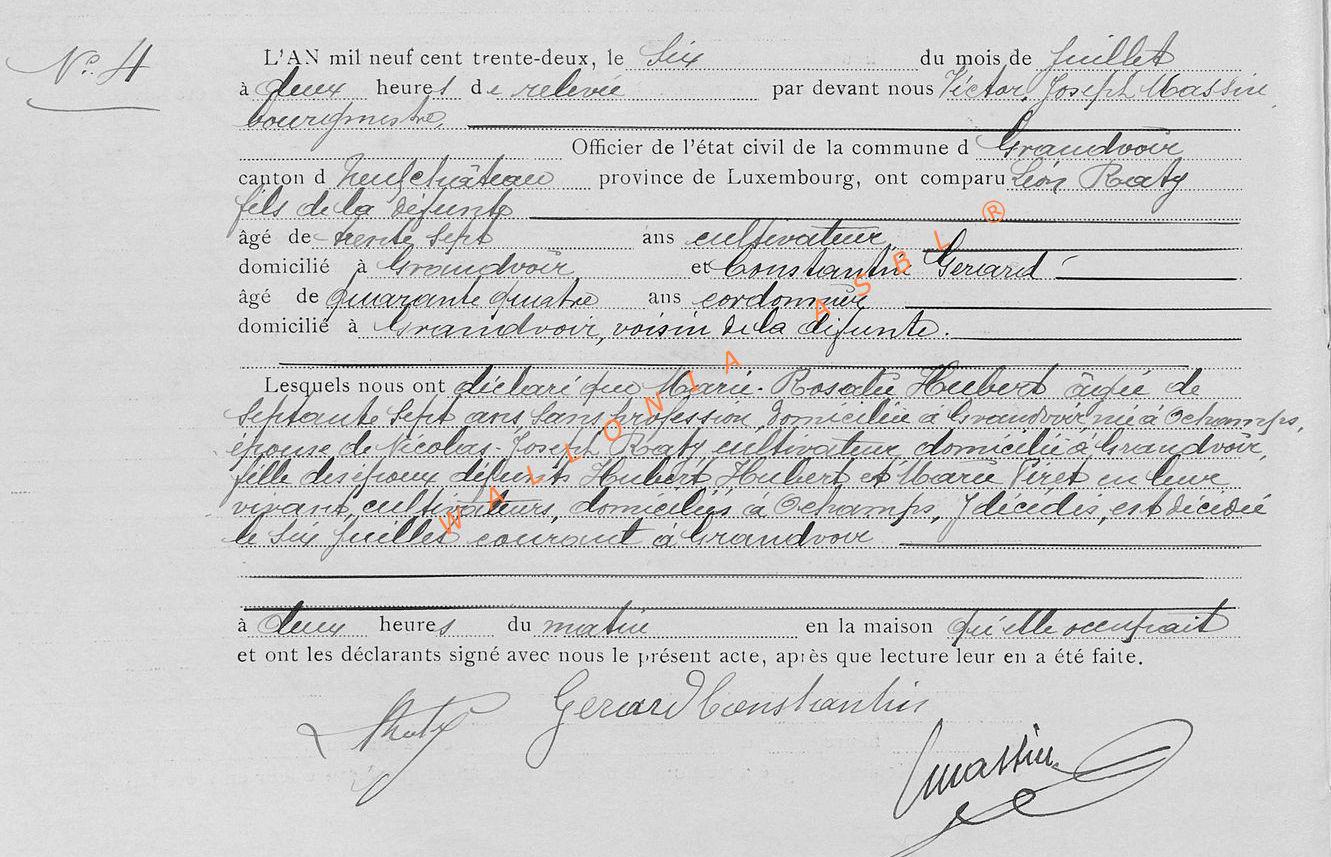 N° 4
L'AN mil neuf cent trente-deux, le Six du mois de Juillet
à deux heures de relevée par devant nous Victor, Joseph Massin,
bourgmestre,
Officier de l'état civil de la commune d Grandvoir
canton d Neufchâteau province de Luxembourg, ont comparu Léon Raty
fils de la défunte
âgé de trente sept ans cultivateur,
domicilié à Grandvoir et Constantin Gerard
âgé de quarante quatre ans cordonnier
domicilié à Grandvoir, voisin de la défunte.
Lesquels nous ont déclaré que Marie-Rosalie Hubert âgée de
septante sept ans, sans profession, domiciliée à Grandvoir née à Ochamps,
épouse de Nicolas-Joseph Raty cultivateur, domicilié à Grandvoir,
fille des époux défunts Hubert Hubert et Marie Piret en leur
vivant, cultivateurs, domiciliés à Ochamps, y décédés, est décédée
le Six Juillet courant à Grandvoir
à deux heures du matin en la maison qu'elle occupait
et ont les déclarants signé avec nous le présent acte, après que lecture leur en a été faite.
Gerard Constantin
Massin
WALLONIA ASBL ®